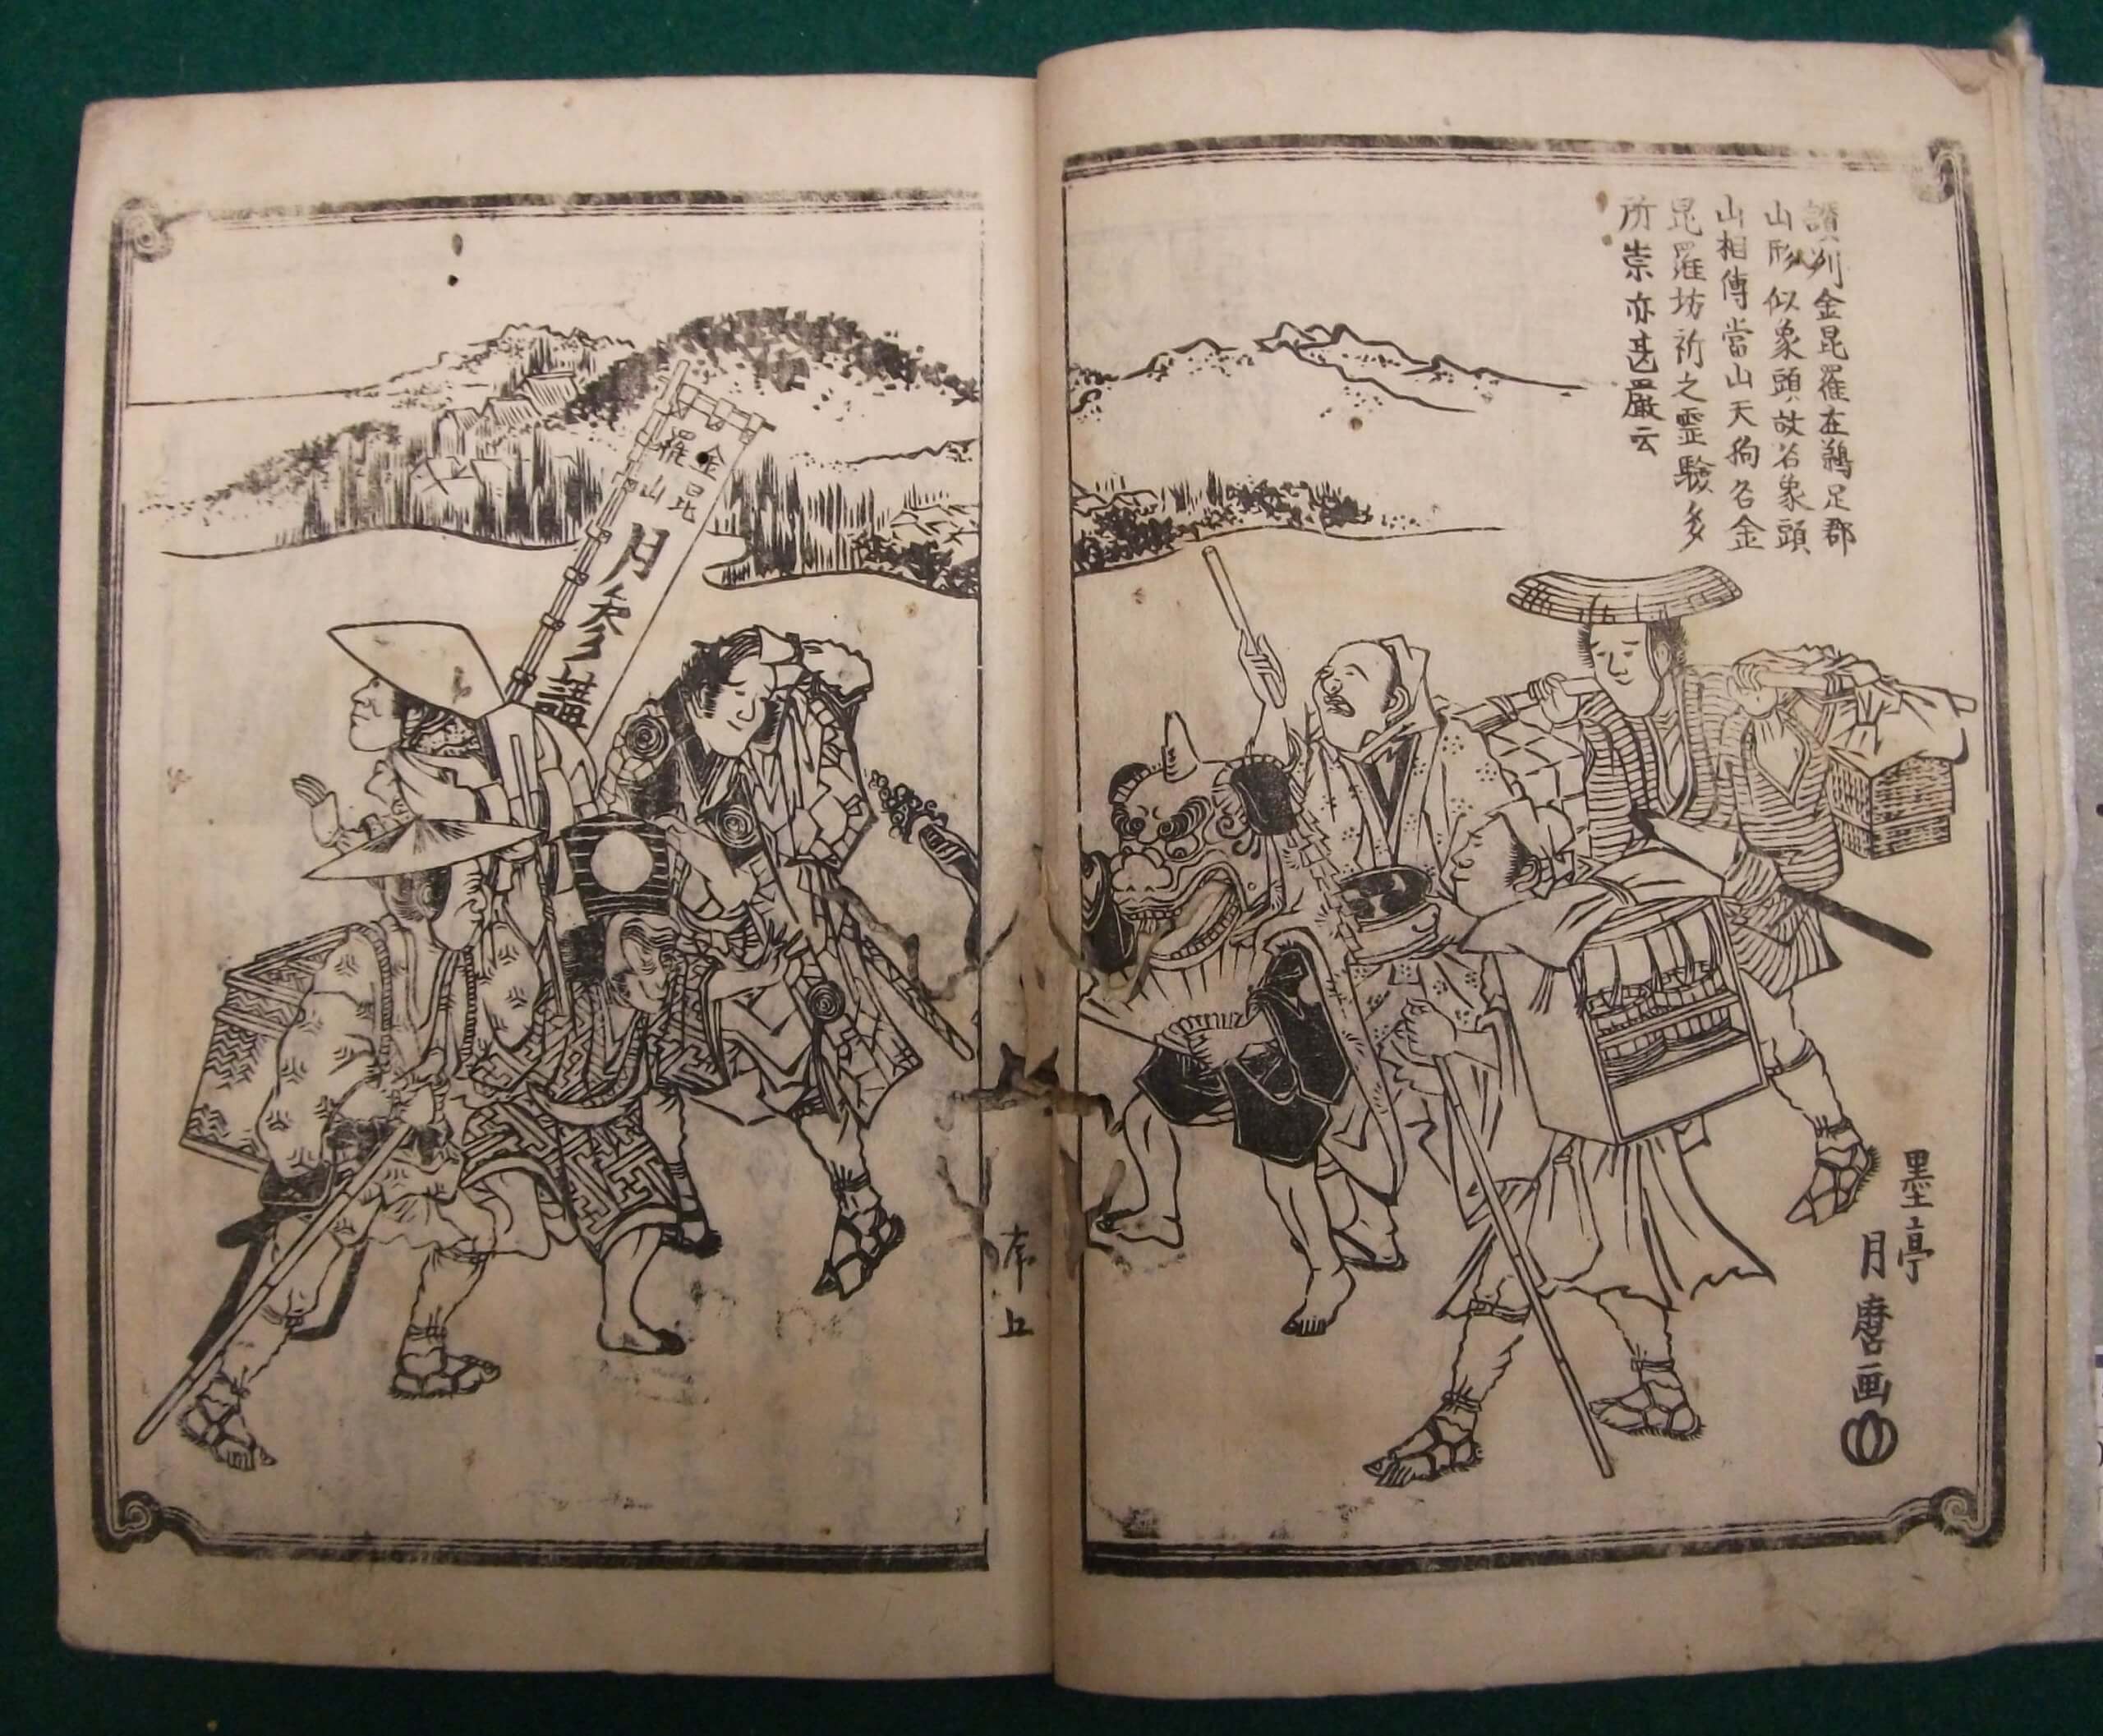 讃州金昆羅在鵜足郡
山形似象頭故名象頭
山相傳當山天狗名金
昆羅坊祈之霊驗多
所崇亦甚嚴云
金昆
羅山
月参講
墨亭
月麿画